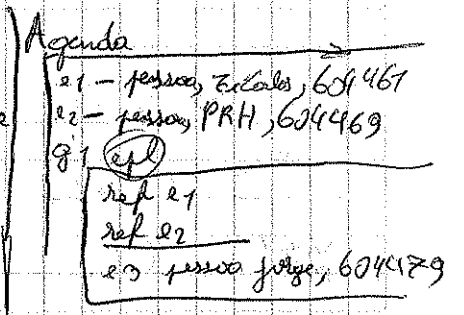 Agenda
e1 - pessoa, ZéCarlos, 604461
e2 - pessoa, PRH, 604469
g1 epl
ref e1
ref e2
e3 pessoa jorge, 604479